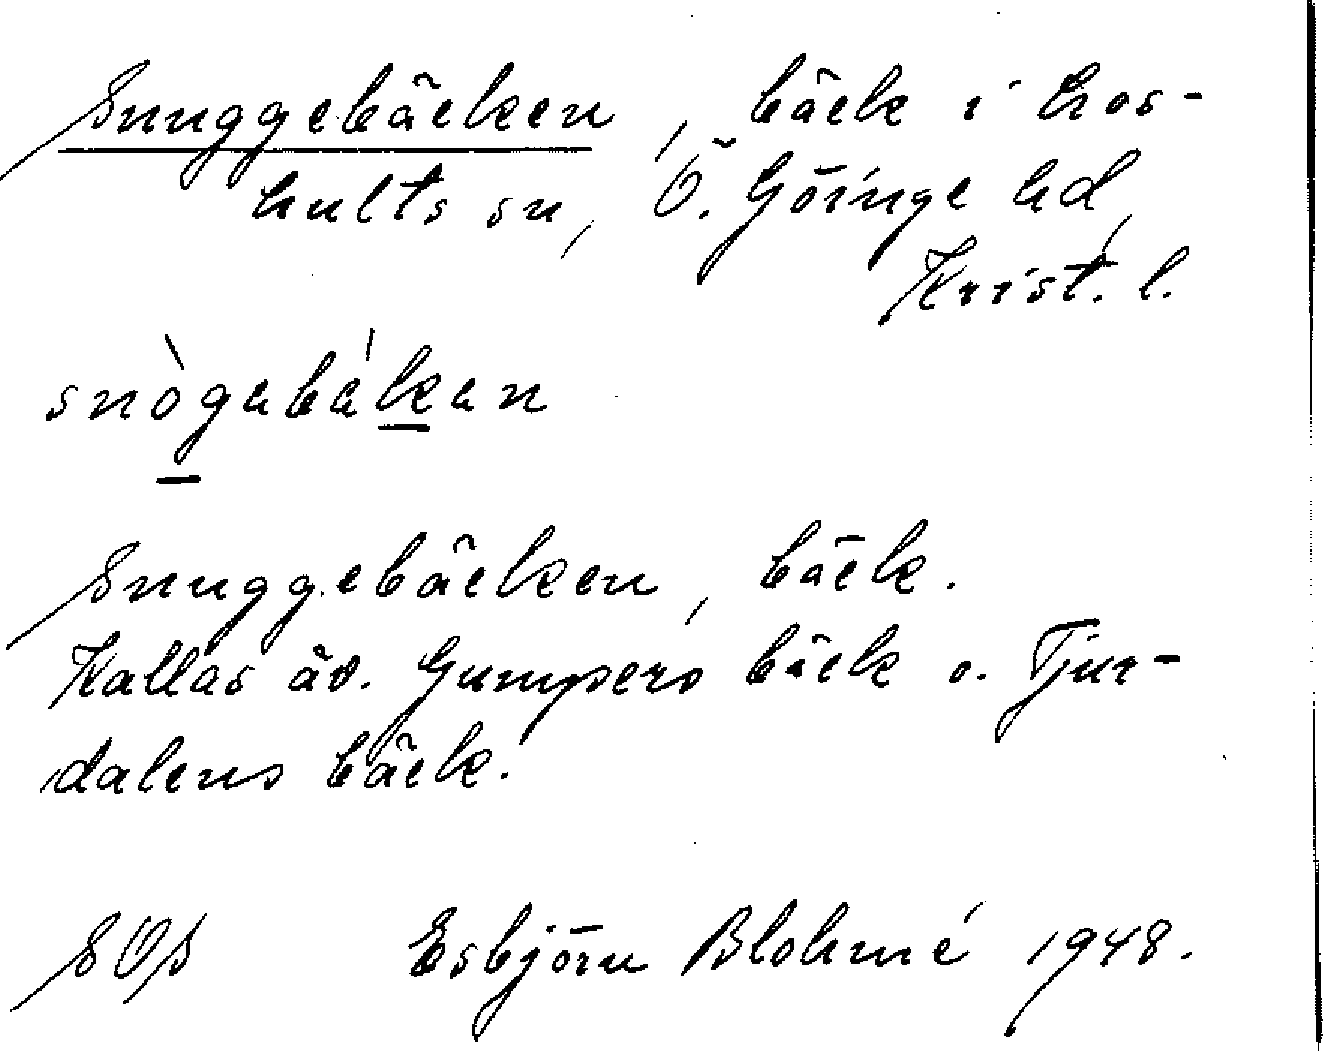 Snuggebäcken, bäck i Los-
hults sn, Ö. Göinge hd,
Krist. l.
snògabákan
Snuggebäcken, bäck.
Kallas äv. Gumpers bäck o. Tjur-
dalens bäck.
SOS Esbjörn Blohmé 1948.